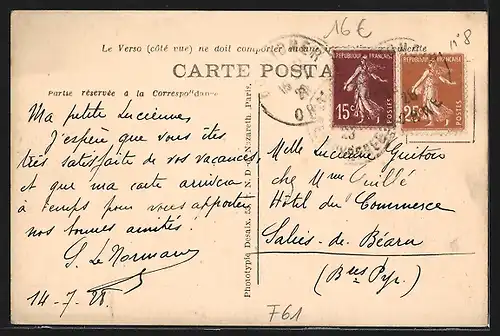 16€
n°8
Le Verso (côté vue) ne doit comporter aucune
CARTE POSTA
Partie réservée à la Correspondance
REPUBLIQUE FRANÇAISE
15c
REPUBLIQUE FRANÇAISE
25c
Ma petite Lucienne,
J'espère que vous êtes
très satisfaite de vos vacances,
et que ma carte arrivera
à temps pour vous apporter
nos bonnes amitiés.
S. Le Normand
14-7.28.
Phototypie Desaix, N.-D. de Nazareth, Paris.
Melle Lucienne Guitou
chez Mme
Hôtel du Commerce
Salies-de-Béarn
(Bses Pyr.)
F61